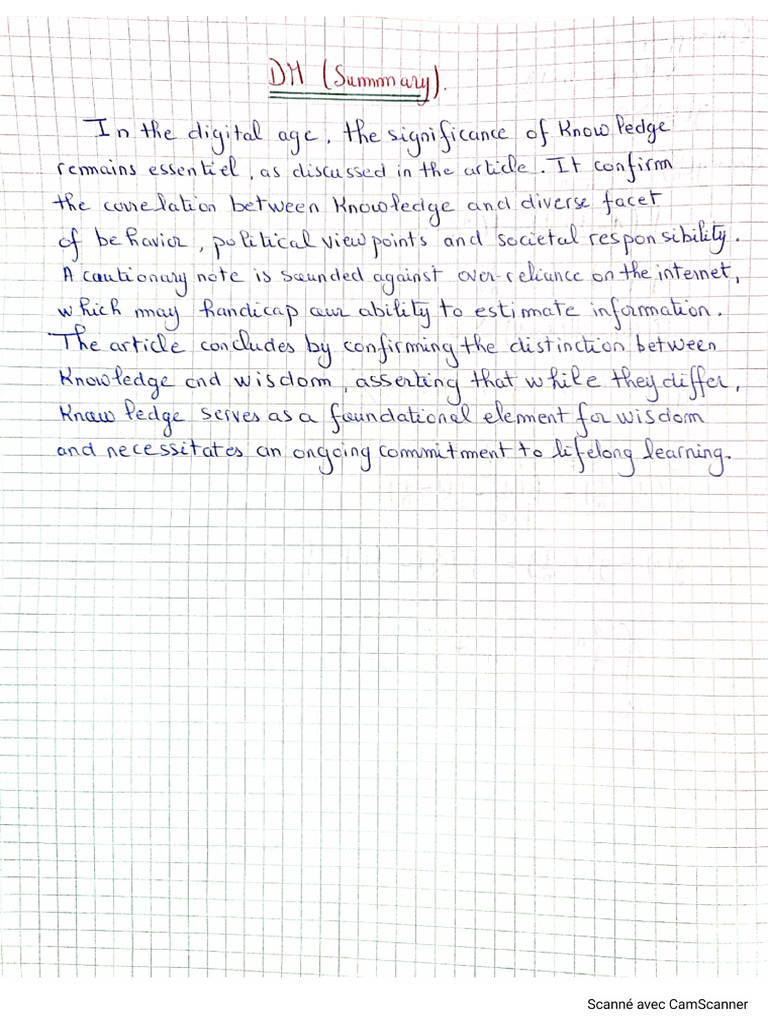 DM (Summary).
In the digital age, the significance of Knowledge
remains essentiel, as discussed in the article. It confirm
the correlation between Knowledge and diverse facet
of behavior, political viewpoints and societal responsibility.
A cautionary note is sounded against over-reliance on the internet,
which may handicap our ability to estimate information.
The article concludes by confirming the distinction between
Knowledge and wisdom, asserting that while they differ,
Knowledge serves as a foundational element for wisdom
and necessitates an ongoing commitment to lifelong learning.
Scanné avec CamScanner